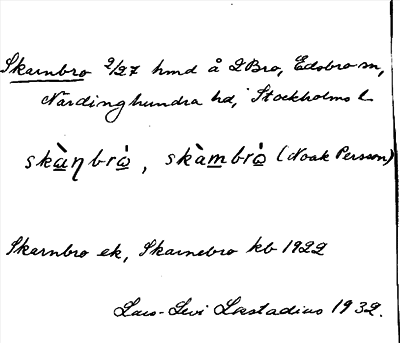 Skarnbro 2/27 hmd å 2 Bro, Edsbro sn,
Närdinghundra hd, Stockholms l.
skànbrò, skàmbrò (Noak Persson)
Skarnbro ek, Skarnebro kb 1922
Lars-Levi Læstadius 1932.